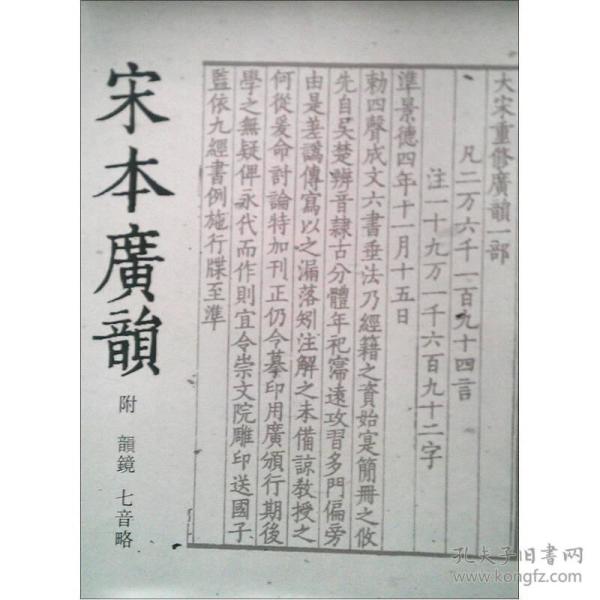 宋本廣韻
附 韻鏡 七音略
大宋重修廣韻一部
凡二万六千一百九十四言
注一十九万一千六百九十二字
準景德四年十一月十五日
勑四聲成文六書垂法乃經籍之資始寔簡冊之攸
先自吳楚辨音隸古分體年祀寖遠攻習多門偏旁
由是差譌傳寫以之漏落矧注解之未備諒教授之
何從爰命討論特加刊正仍令摹印用廣頒行期後
學之無疑俾永代而作則宜令崇文院雕印送國子
監依九經書例施行牒至準
孔夫子旧书网
www.kongfz.com